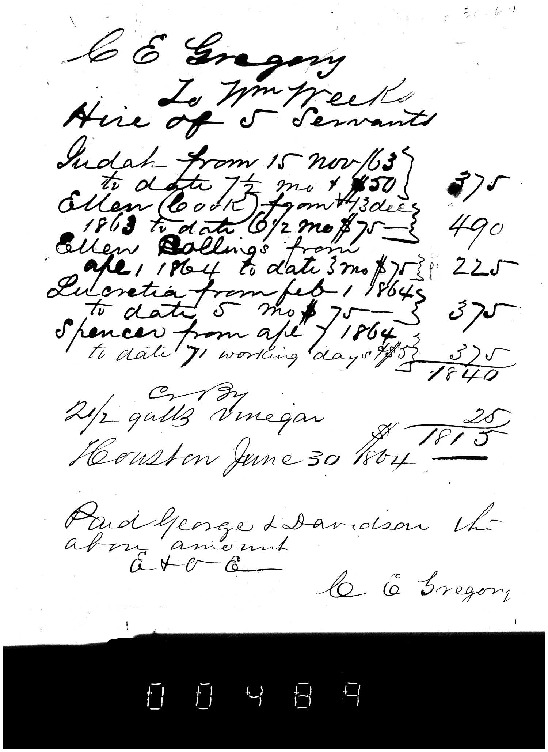 C E Gregory
To Wm Weeks
Hire of 5 Servants
Judah from 15 Nov/63
to date 7 1/2 mo $50 375
Ellen (Cook) from 13 dec
1863 to date 6 1/2 mo $75 — 490
Ellen Rollings from
ape 1 1864 to date 3 mo $75 225
Lucretia from feb 1 1864
to date 5 mo $75 — 375
Spencer from ape 7 1864
to date 71 working days $5 375
1840
Cr By
2 1/2 galls Vinegar 25
$ 1815
Houston June 30 1864
Paid George & Davidson the
above amount
E & O E
C E Gregory
00489